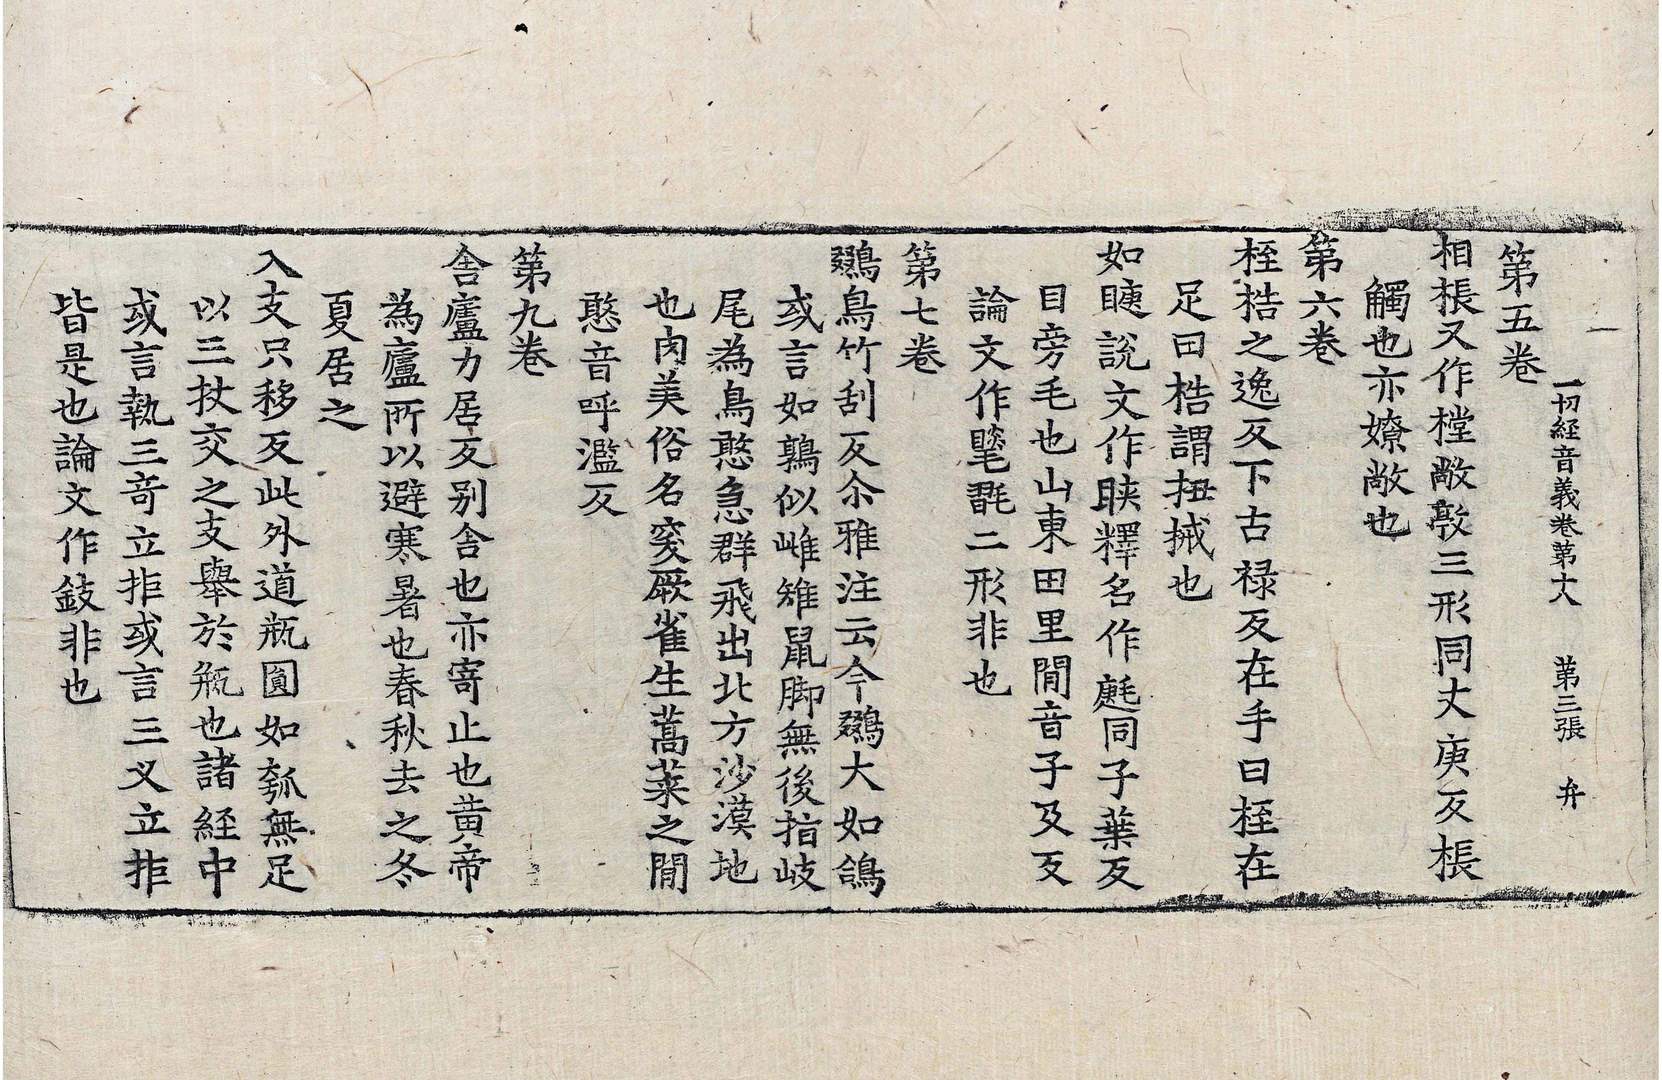 一切経音義卷第十八　第三張　弁
第五卷
相棖又作樘敞敦三形同丈庚反棖
觸也亦嫽敞也
第六卷
桎梏之逸反下古禄反在手曰桎在
足曰梏謂杻械也
如䀹說文作䀹釋名作㲝同子葉反
目旁毛也山東田里間音子及反
論文作毣㲲二形非也
第七卷
鵽鳥竹刮反尒雅注云今鵽大如鴿
或言如鶉似雌雉鼠脚無後指岐
尾為鳥憨急群飛出北方沙漠地
也肉美俗名突厥雀生蒿萊之間
憨音呼濫反
第九卷
舍廬力居反别舍也亦寄止也黄帝
為廬所以避寒暑也春秋去之冬
夏居之
入支只移反此外道瓶圓如瓠無足
以三杖交之支舉於瓶也諸経中
或言執三奇立拒或言三叉立拒
皆是也論文作鈘非也